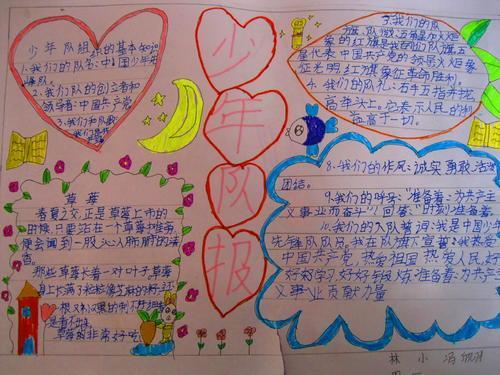 少年队组织的基本知识
1.我们的队名:中国少年先
锋队。
2.我们队的创立者和
领导者:中国共产党
3.我们和队歌:
少
年
队
报
3.我们的队
旗、队徽:五角星加火炬
象的红旗是我们的队旗,五
星代表中国共产党的领导,火炬象
征光明,红旗象征革命胜利。
4.我们的队礼:右手五指并拢,
高举头上。它表示人民的利
益高于一切。
草莓
春夏之交,正是草莓上市的
时候,只要站在一个草莓摊旁,
便会闻到一股沁人肺腑的清
香。
那些草莓长着一对叶子,草莓
身上长满了
草莓
非常好吃
8.我们的作风:诚实、勇敢、活泼、
团结。
9.我们的呼号:"准备着:为共产主
义事业而奋斗!"回答:"时刻准备着。
10.我们的入队誓词:我是中国少年
先锋队队员。我在队旗下宣誓:我热爱
中国共产党,热爱祖国,热爱人民,好
好学习,好好锻炼,准备着:为共产主
义事业贡献力量
林 小